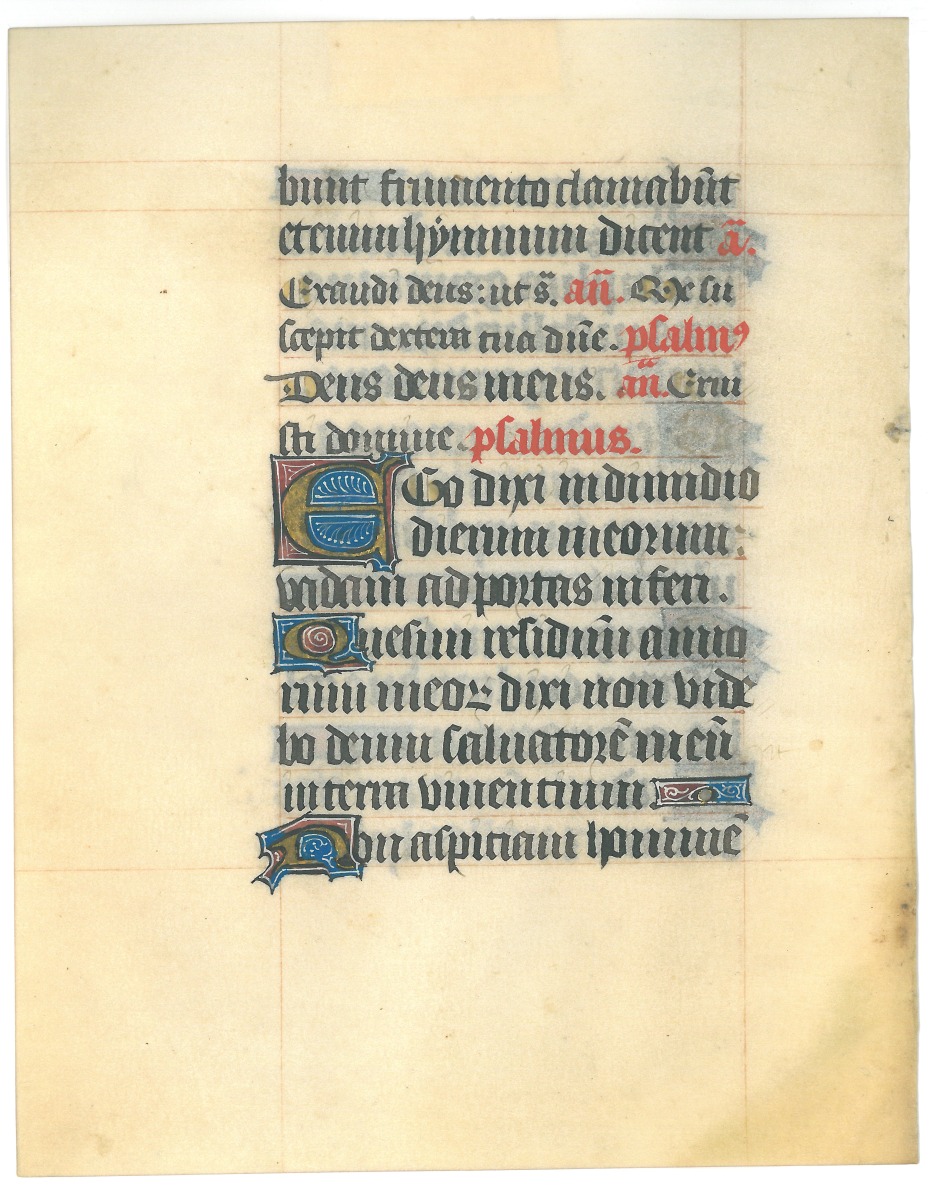 bunt frumento clamabūt
etenim hẏmnum dicent ā.
Exaudi deus: ut s̄. an̄. Me su
scepit dextera tua dn̄e. psalmꝰ
Deus deus meus. an̄. Erui
sti domine. psalmus.
EGo dixi in dimidio
dierum meorum:
vadam ad portas inferi.
Quesiui residuū anno
rum meoꝝ dixi non vide
bo deum saluatorē meū
in terra viuentium
Non aspiciam hominē